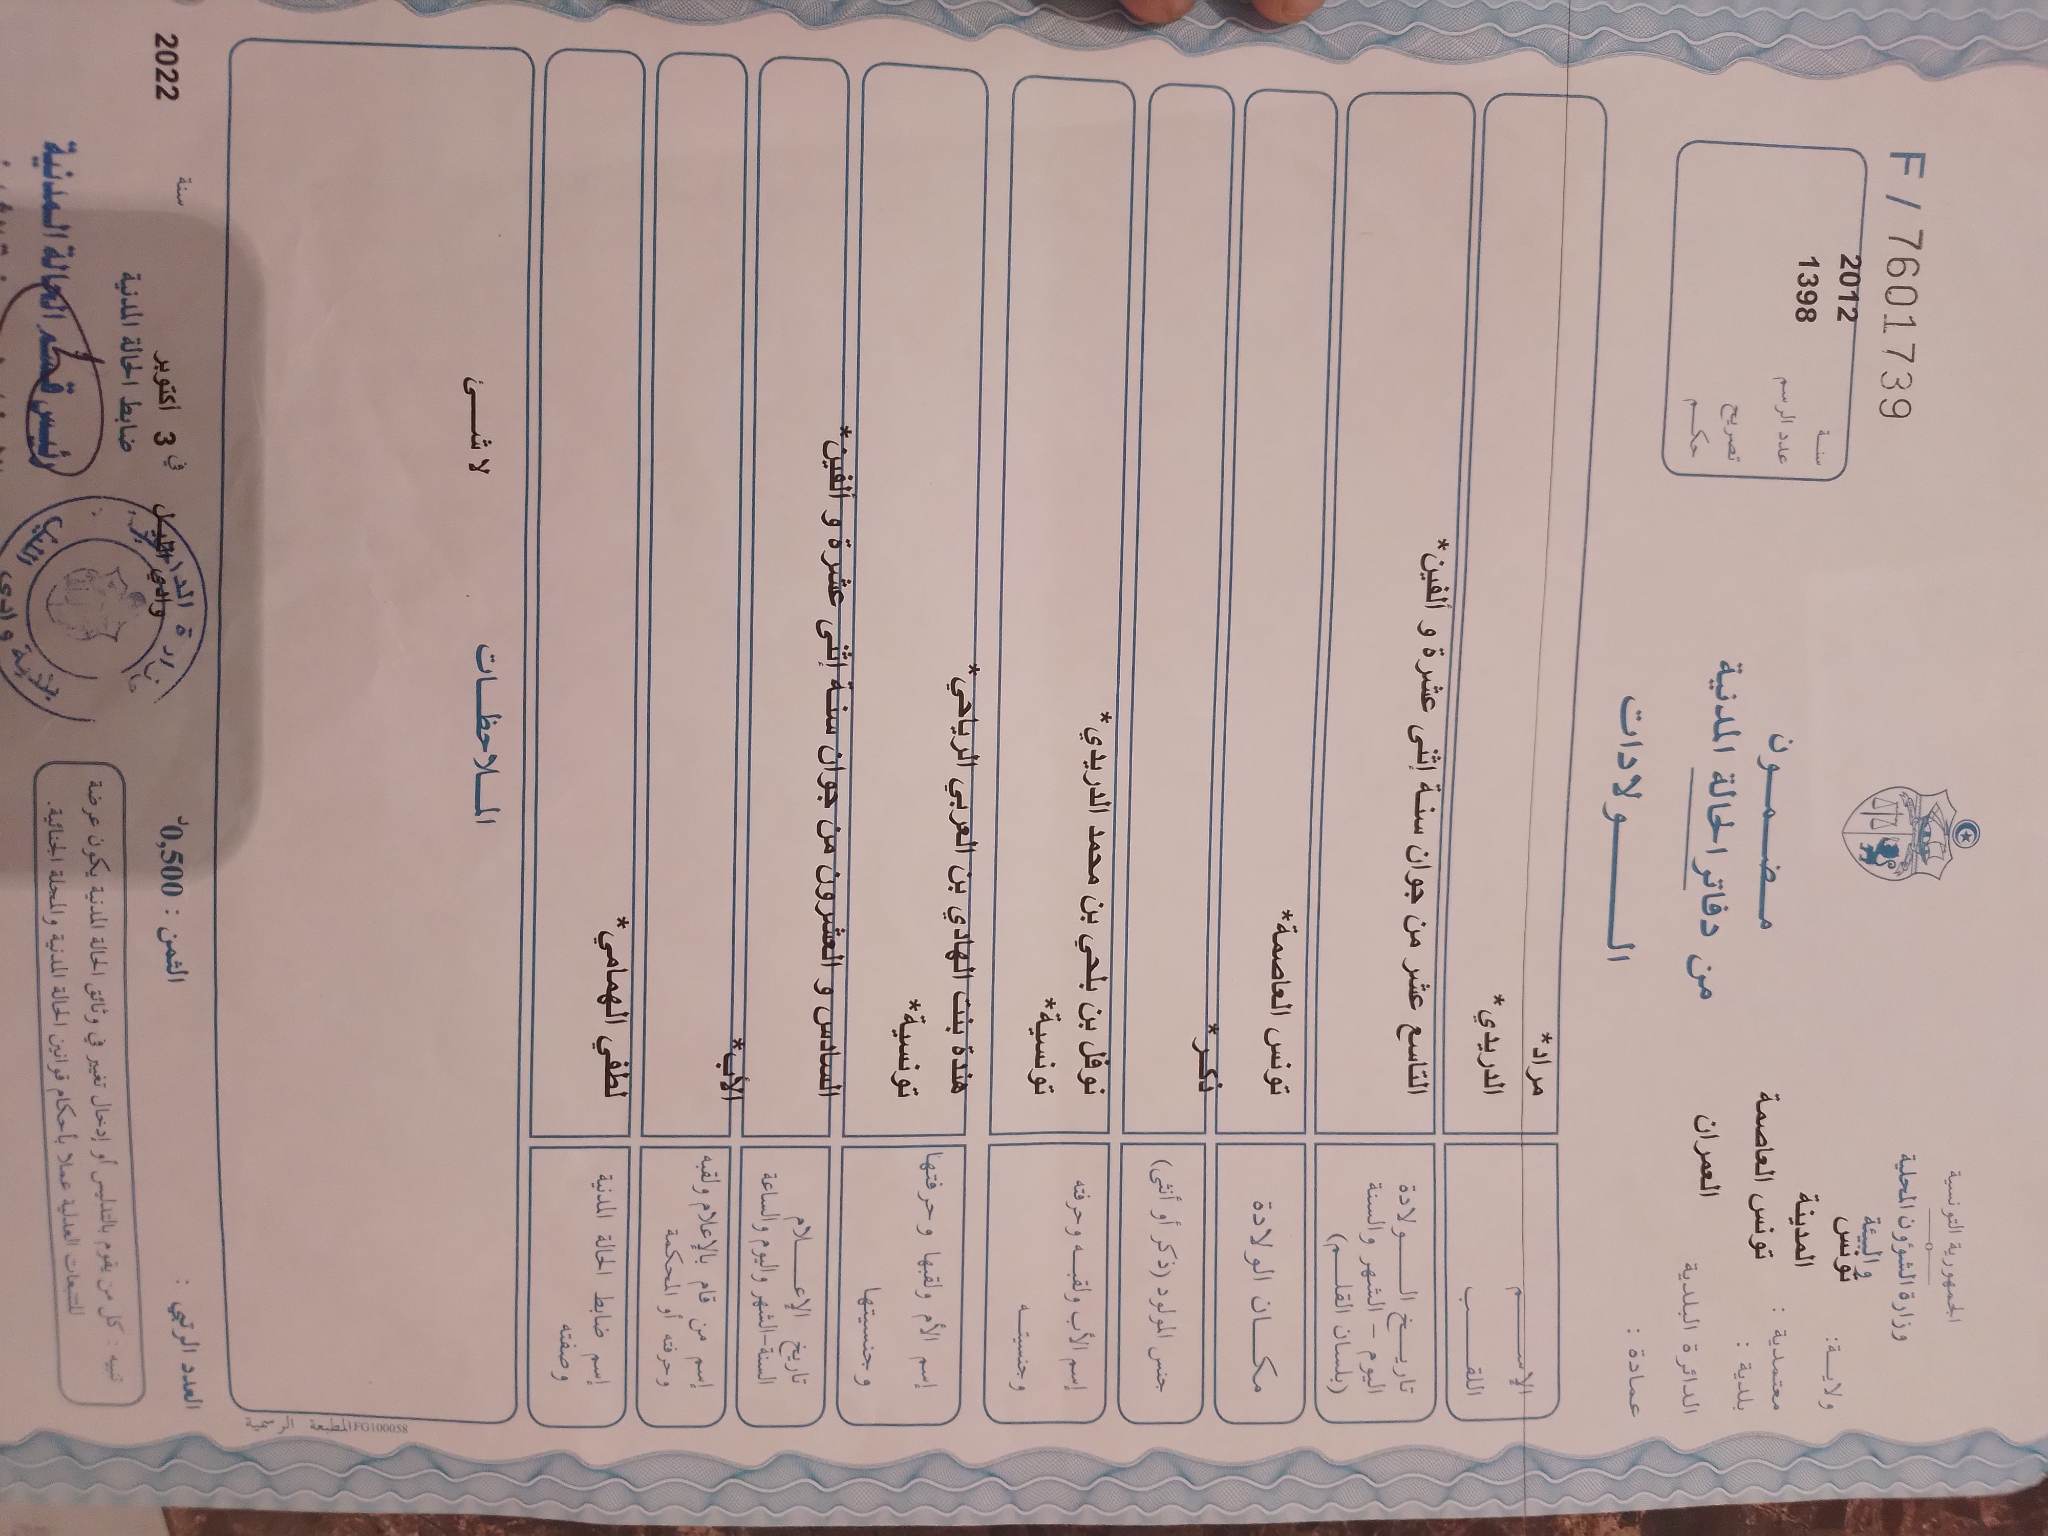 الجمهورية التونسية
وزارة الشؤون المحلية
والبيئة
ولايـــة: تونس
معتمدية : المدينة
بلدية : تونس العاصمة
الدائرة البلدية العمران
عمادة :
F / 7601739
سنـــة 2012
عدد الرسم 1398
تصريح
حكـــم
مـــضـــمـــون
من دفاتر الحالة المدنية
الـــــولادات
الإســـــم مراد*
اللقـــــب الدريدي*
تاريـــخ الــــولادة
اليوم – الشهر والسنة
(بلسان القلـــم)
التاسع عشر من جوان سنة إثنى عشرة و ألفين*
مكـــان الولادة تونس العاصمة*
جنس المولود (ذكر أو أنثى) ذكر*
إسم الأب ولقبـــه وحرفته نوفل بن بلحي بن محمد الدريدي*
وجنسيتـــه تونسية*
إسم الأم ولقبها وحرفتها هندة بنت الهادي بن العربي الرياحي*
وجنسيتها تونسية*
تاريخ الإعـــلام
السنة-الشهر واليوم والساعة
السادس و العشرون من جوان سنة إثنى عشرة و ألفين*
إسم من قام بالإعلام ولقبه
وحرفته أو المحكمة
الأب*
إسم ضابط الحالة المدنية
وصفته
لطفي الهمامي*
المـــلاحظـــات
لا شـــئ
المطبعة الرسمية FG100058
العدد الرتبي :
الثمن : 0,500د
وادي الليل في 3 أكتوبر سنة 2022
ضابط الحالة المدنية
رئيس قسم الحالة المدنية
تنبيه : كل من يقوم بالتدليس أو إدخال تغيير في وثائق الحالة المدنية يكون عرضة
للتتبعات العدلية عملا بأحكام قوانين الحالة المدنية والمجلة الجنائية.